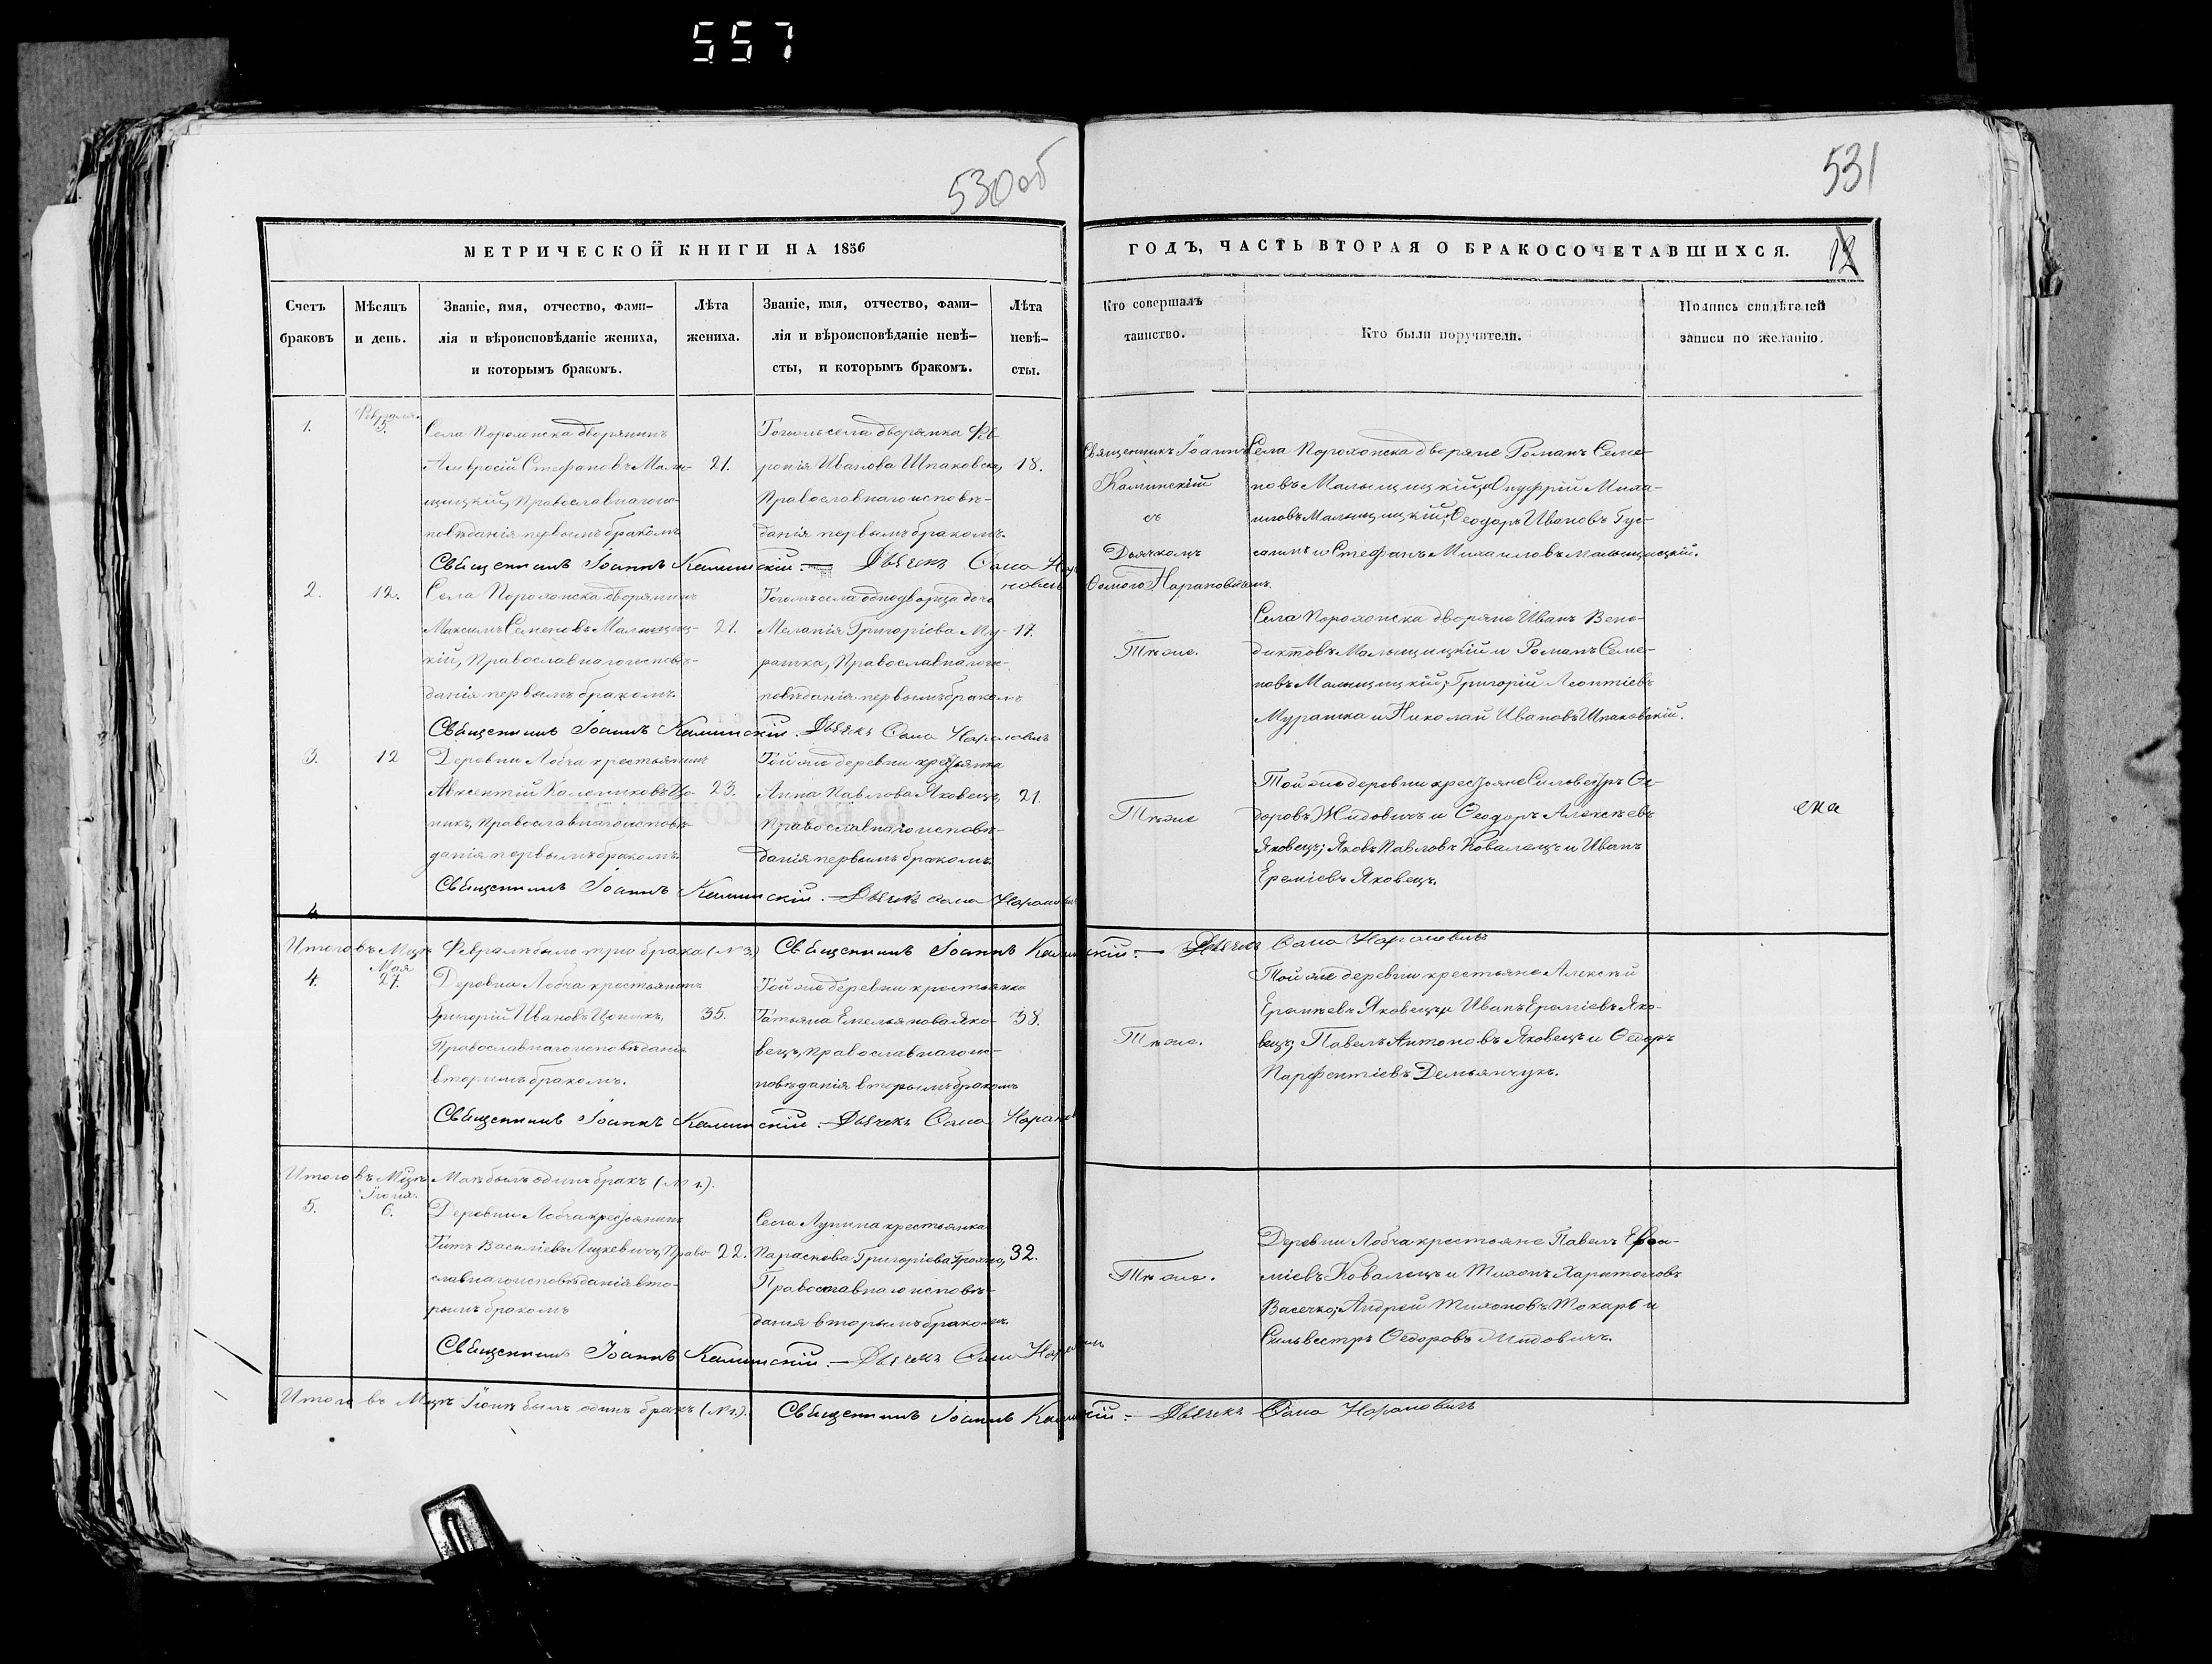 557
530об
531
МЕТРИЧЕСКОЙ КНИГИ НА 1856
ГОДЪ, ЧАСТЬ ВТОРАЯ О БРАКОСОЧЕТАВШИХСЯ.
12
Счетъ
браковъ
Мѣсяцъ
и день.
Званіе, имя, отчество, фами-
лія и вѣроисповѣданіе жениха,
и которымъ бракомъ.
Лѣта
жениха.
Званіе, имя, отчество, фами-
лія и вѣроисповѣданіе невѣ-
сты, и которымъ бракомъ.
Лѣта
невѣ-
сты.
Кто совершалъ
таинство.
Кто были поручители.
Подпись свидѣтелей
записи по желанію.
1.
Февраля.
5.
Села Порохонска дворянинъ
Амвросій Стефановъ Малы-
щицкій, Православнаго ис-
повѣданія первымъ бракомъ
21.
Тогожъ села дворянка Фев-
ронія Иванова Шпаковска,
Православнаго исповѣ-
данія первымъ бракомъ.
18.
Священникъ Іоаннъ
Калинскій
съ
Дьячкомъ
Ѳомою Нарановичемъ.
Села Порохонска дворяне Романъ Семе-
новъ Малыщицкій и Онуфрій Миха-
иловъ Малыщицкій; Ѳеодоръ Ивановъ
и Стефанъ Михаиловъ Малыщицкій.
Священникъ Іоаннъ Калинскій. — Дьячекъ Ѳома Нарановичъ
2.
12.
Села Порохонска дворянинъ
Максимъ Семеновъ Малыщиц-
кій, Православнаго исповѣ-
данія первымъ бракомъ.
21.
Тогожъ села однодворца дочь
Меланія Григоріева Му-
рашка, Православнаго ис-
повѣданія первымъ бракомъ
17.
Тѣже.
Села Порохонска дворяне Иванъ Вене-
диктовъ Малыщицкій и Романъ Семе-
новъ Малыщицкій; Григорій Леонтіевъ
Мурашка и Николай Ивановъ Шпаковскій.
Священникъ Іоаннъ Калинскій. Дьячекъ Ѳома Нарановичъ
3.
12
Деревни Лобча крестьянинъ
Авксентій Калениковъ Цо-
пикъ, Православнаго исповѣ-
данія первымъ бракомъ.
23.
Тойже деревни крестьянка
Анна Павлова Яковецъ,
Православнаго исповѣ-
данія первымъ бракомъ.
21.
Тѣже
Тойже деревни крестьяне Сильвестръ Ѳе-
доровъ Жидовичъ и Ѳеодоръ Алексѣевъ
Яковецъ; Яковъ Павловъ Ковалецъ и Иванъ
Ереміевъ Яковецъ.
ека
Священникъ Іоаннъ Калинскій. — Дьячекъ Ѳома Нарановичъ
Итого въ Мцѣ Февралѣ было три брака (N 3.) Священникъ Іоаннъ Калинскій. — Дьячекъ Ѳома Нарановичъ
4.
Мая
27.
Деревни Лобча крестьянинъ
Григорій Ивановъ Цопикъ,
Православнаго исповѣданія
вторымъ бракомъ.
35.
Тойже деревни крестьянка
Татьяна Емельянова Яко-
вецъ, Православнаго ис-
повѣданія вторымъ бракомъ
38.
Тѣже.
Тойже деревни крестьяне Алексѣй
Еремѣевъ Яковецъ и Иванъ Ереміевъ Яко-
вецъ; Павелъ Антоновъ Яковецъ и Ѳедоръ
Парфентіевъ Демьянчукъ.
Священникъ Іоаннъ Калинскій. — Дьячекъ Ѳома Наранов
Итого въ Мцѣ Маѣ былъ одинъ бракъ (N 1.).
5.
Іюня.
6.
Деревни Лобча крестьянинъ
Титъ Василіевъ Лицкевичъ, Право-
славнаго исповѣданія вто-
рымъ бракомъ
22.
Села Лунина крестьянка
Параскева Григоріева
Православнаго исповѣ-
данія вторымъ бракомъ.
32.
Тѣже.
Деревни Лобча крестьяне Павелъ Ере-
міевъ Ковалецъ и Тихонъ Харитоновъ
Васечко; Андрей Тихоновъ Токарь и
Сильвестръ Ѳедоровъ Жидовичъ.
Священникъ Іоаннъ Калинскій. — Дьячекъ Ѳома Нарановичъ
Итого въ Мцѣ Іюнѣ былъ одинъ бракъ (N 1.). Священникъ Іоаннъ Калинскій. — Дьячекъ Ѳома Нарановичъ